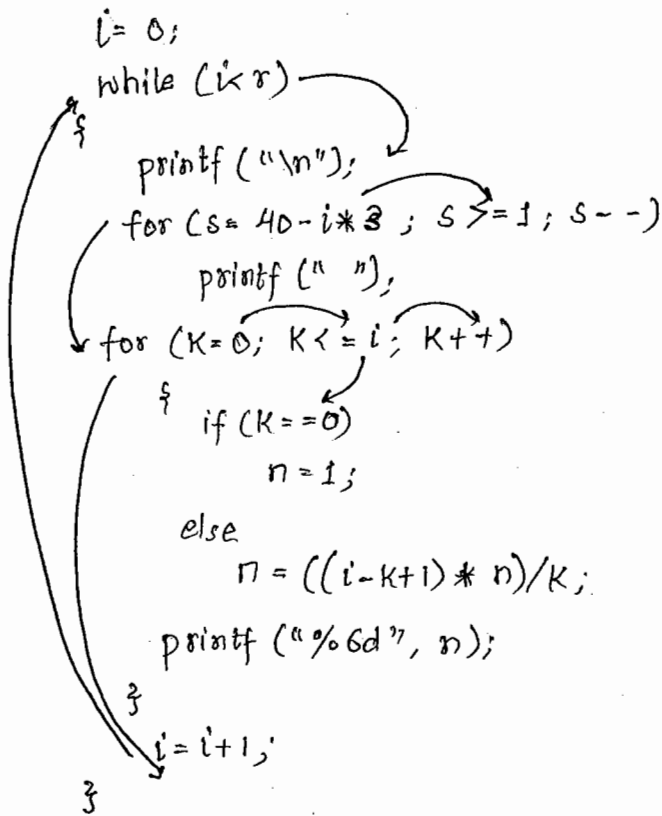 i= 0;
while (i< r)
{
printf ("\n");
for (s= 40-i*3 ; s >=1; s--)
printf (" ");
for (K=0; K<=i; K++)
{
if (K==0)
n=1;
else
n = ((i-K+1) * n)/K;
printf ("%6d", n);
}
i=i+1;
}